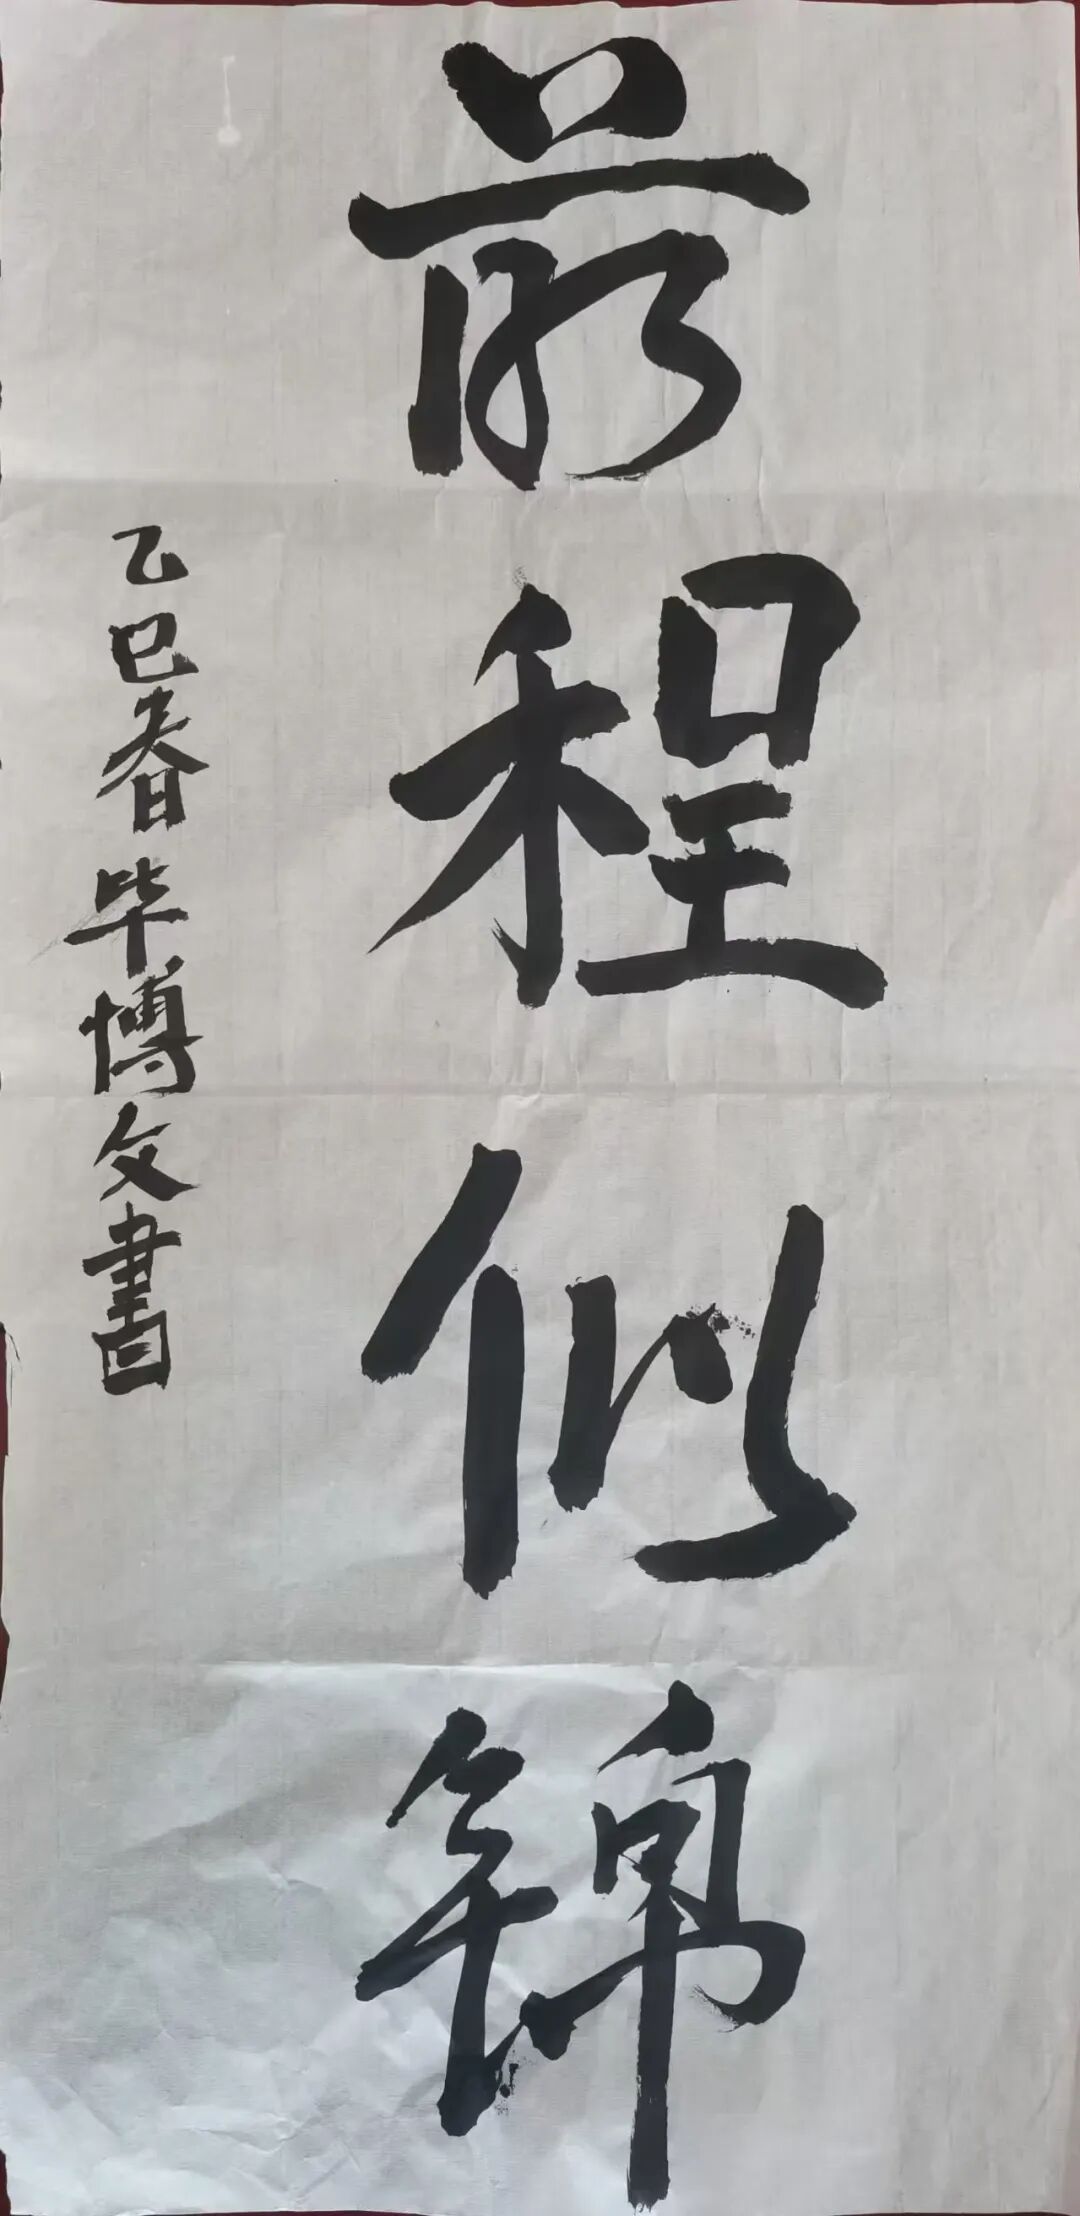 前程似锦
乙巳春毕博文書